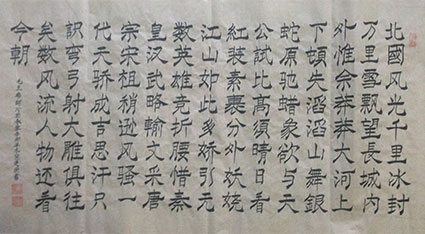 北國风光千里冰封
万里雪飘望長城内
外惟余莽莽大河上
下頓失滔滔山舞銀
蛇原驰蜡象欲与天
公試比高須晴日看
红装素裹分外妖娆
江山如此多娇引无
数英雄竞折腰惜秦
皇汉武略輸文采唐
宗宋祖稍逊风骚一
代天骄成吉思汗只
識弯弓射大雕俱往
矣数风流人物还看
今朝